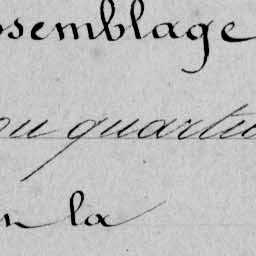 ssemblage
ou quartu
n la